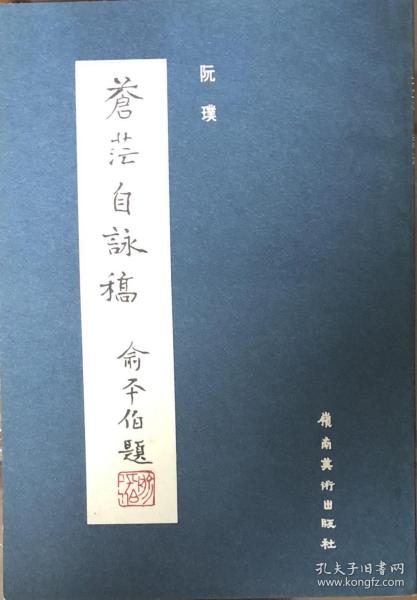 阮璞
蒼茫自詠稿
俞平伯題
嶺南美術出版社
孔夫子旧书网
www.kongfz.com